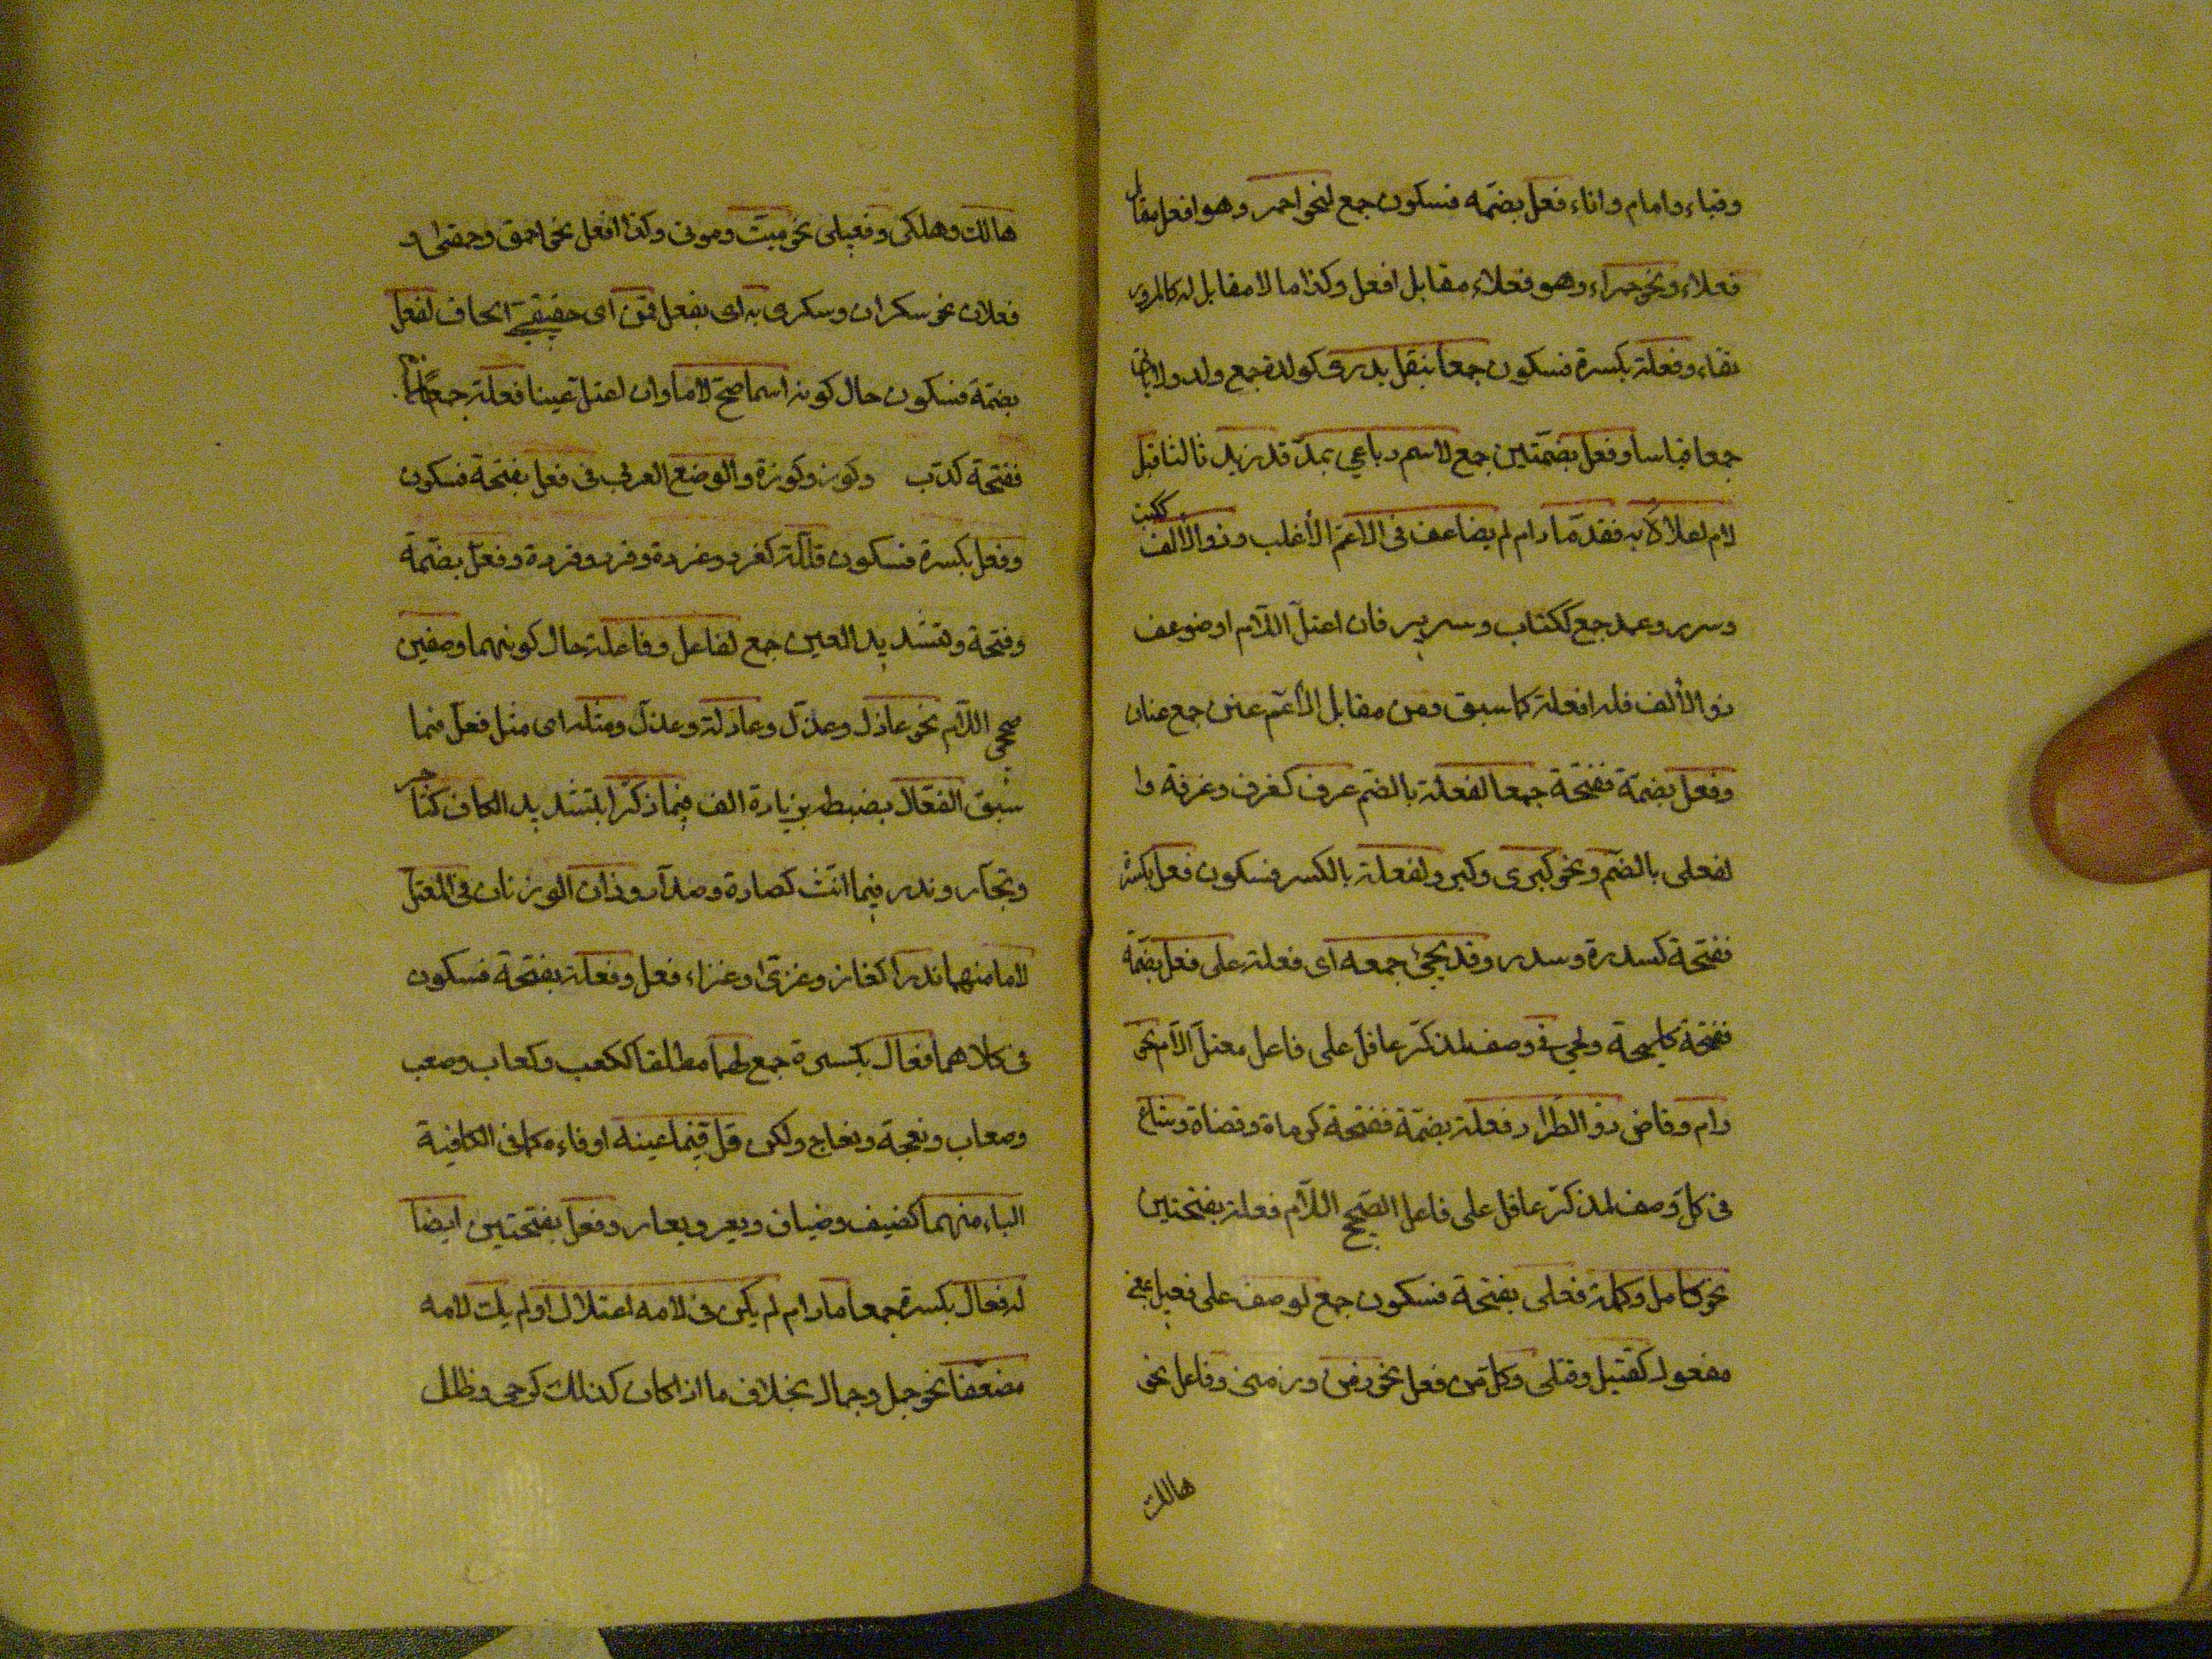 وقباء وامام واناء فعل بضمه فسكون جمع لنحو احمر وهو افعل مقابل
فعلاء ونحو حمراء وهو فعلاء مقابل افعل وكذا ما لا مقابل له كالمر ور
تقاء وفعلة بكسرة فسكون جمعا بنقل يدرى كولدة جمع ولد ولا
جمعا قياسا وفعل بضمتين جمع لاسم رباعي بمد قد زيد ثالثا قبل
لام اعلالا به فقد ما دام لم يضاعف فى الاعم الأغلب وذو الالف ككتب
وسرر وعمد جمع ككتاب وسرير فان اعتل اللام او ضوعف
ذو الألف فله افعلة كما سبق ومن مقابل الأعم عنن جمع عنان
وفعل بضمة ففتحة جمعا لفعلة بالضم عرف كغرف وغرفة وا
لفعلى بالضم ونحو كبرى وكبر ولفعلة بالكسر فسكون فعل بكسرة
ففتحة كسدرة وسدر وقد يجئ جمعه اى فعلة على فعل بضمة
ففتحة كلحية ولحى فى وصف لمذكر عاقل على فاعل معتل اللام نحو
رام وقاض ذو اطراد فعلة بضمة ففتحة كرماة وقضاة وشاع
فى كل وصف لمذكر عاقل على فاعل الصحيح اللام فعلة بفتحتين
نحو كامل وكملة فعلى بفتحة فسكون جمع لوصف على فعيل بمعنى
مفعول كقتيل وقتلى وكل من فعل نحو زمن وزمنى وفاعل نحو
هالك
هالك وهلكى وفعيلى نحو ميت وموتى وكذا افعل نحو احمق وحمقى و
فعلان نحو سكران وسكرى به اى بفعل قمن اى حقيق لفعل
بضمة فسكون حال كونه اسما صح لاما وان اعتل عينا فعلة جمعا
ففتحة كدب وكوز وكوزة والوضع العربى فى فعل بفتحة فسكون
وفعل بكسرة فسكون قلله كغرد وغردة وقرد وقردة وفعل بضمة
وفتحة وبتشديد العين جمع لفاعل وفاعلة حال كونهما وصفين
صحيحى اللام نحو عاذل وعذل وعاذلة وعذل ومثله اى مثل فعل فيما
سبق الفعال بضبطه بزيادة الف فيما ذكرا بتشديد الكاف كتاجر
وتجار وندر فيما انث كصادة وصداد وذان الوزنان فى المعتل
لاما منهما ندرا كغاز وغزى وغزاء فعل وفعلة بفتحة فسكون
فى كلاهما فعال بكسرة جمع لهما مطلقا ككعب وكعاب وصعب
وصعاب ونعجة ونعاج ولكن قل فيما عينه او فاءه كما فى الكافية
الياء منهما كضيف وضياف ويعر ويعار وفعل بفتحتين ايضا
له فعال بكسرة جمعا ما دام لم يكن فى لامه اعتلال او لم يك لامه
مضعفا نحو جبل وجمال بخلاف ما اذا كان كذلك كرحى وطلل